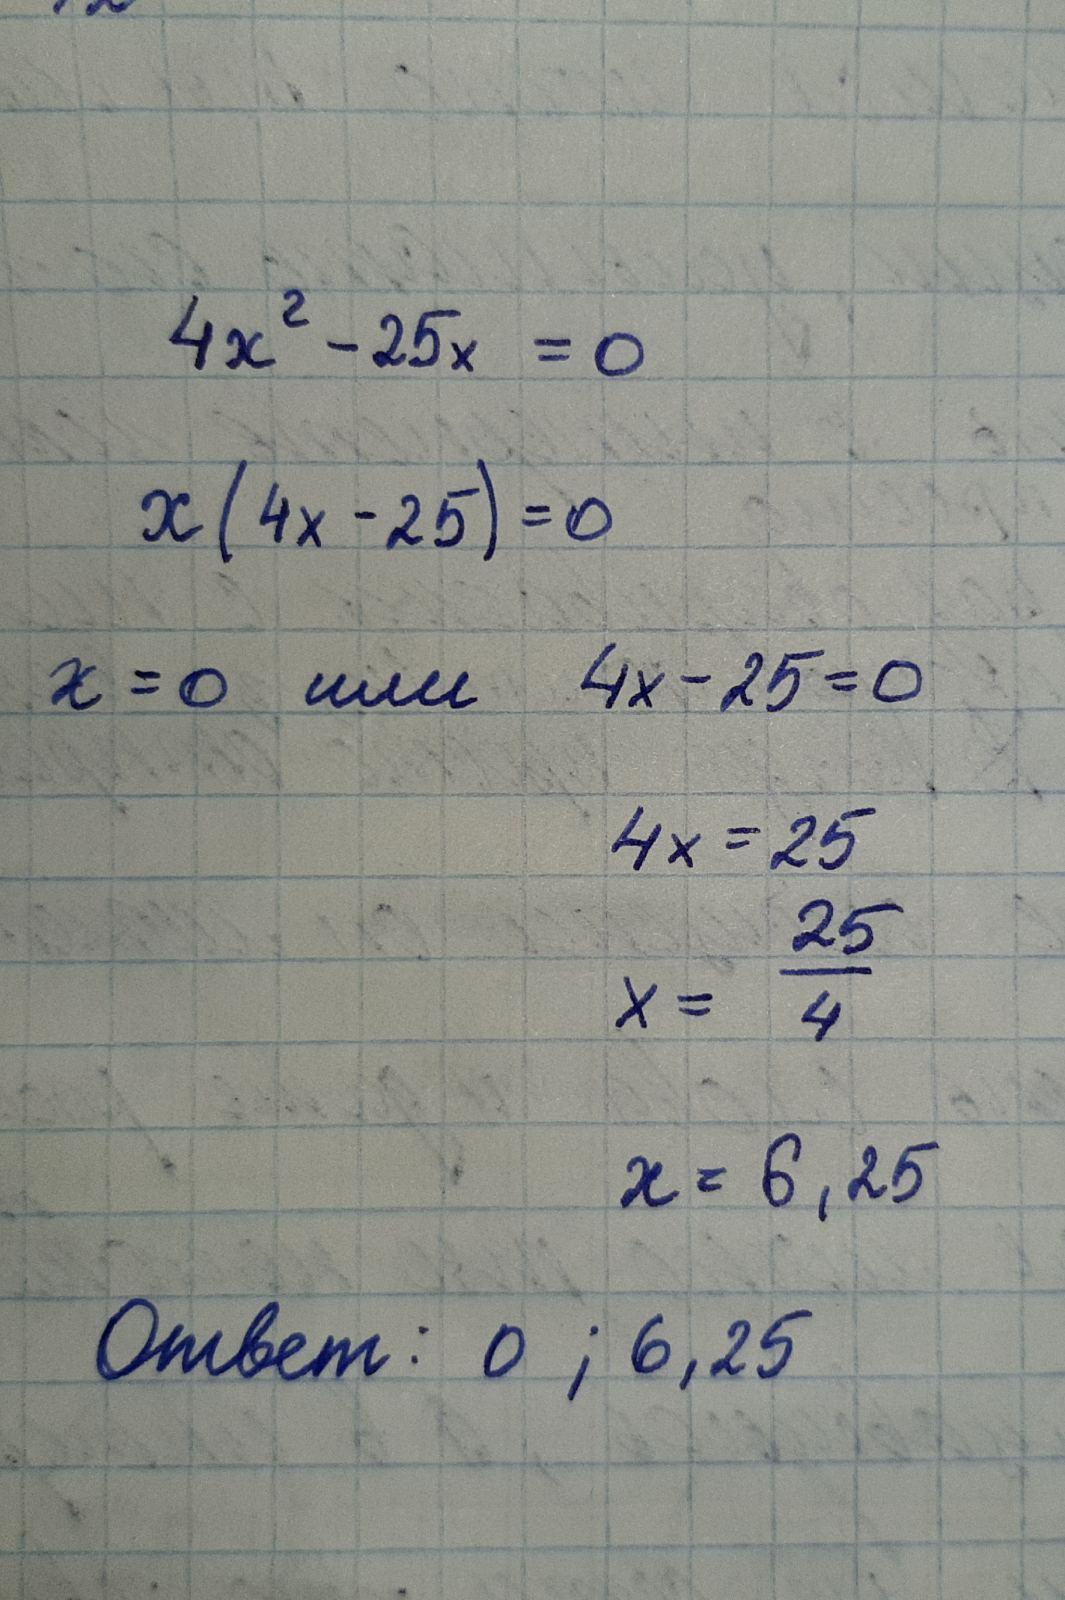 4x² - 25x = 0
x(4x - 25) = 0
x = 0 или 4x - 25 = 0
4x = 25
x = 25/4
x = 6,25
Ответ: 0 ; 6,25